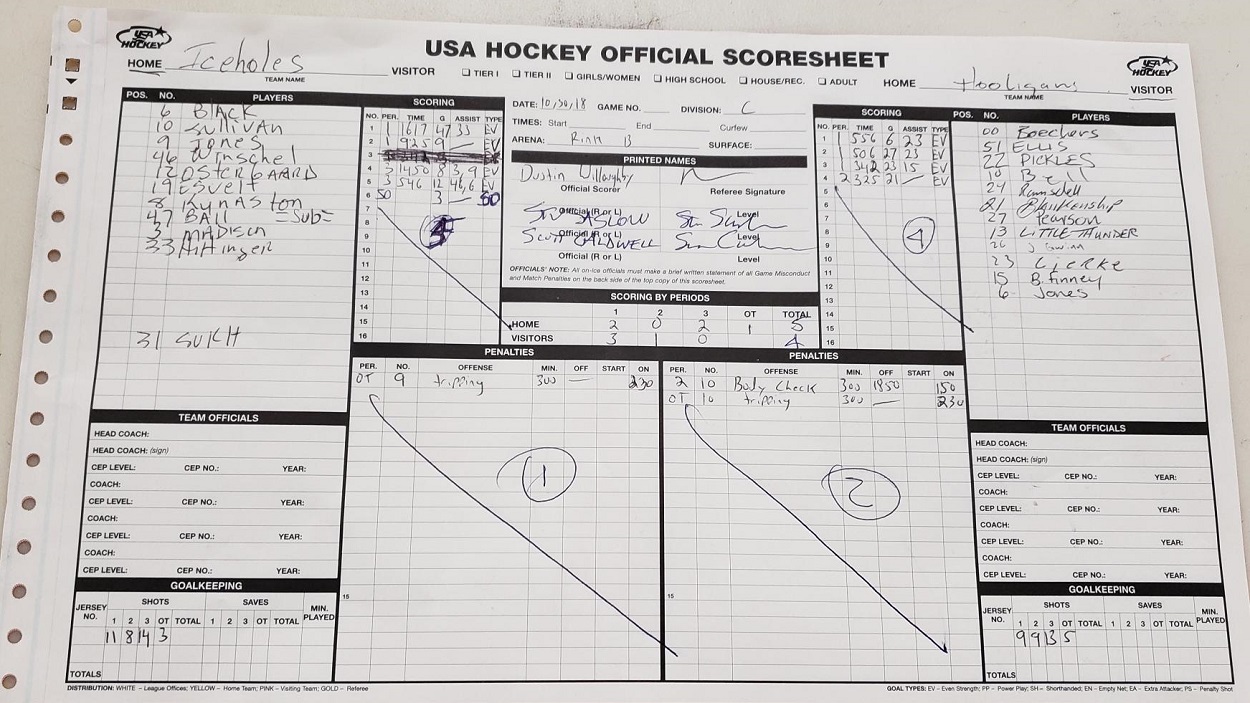 USA HOCKEY
USA HOCKEY OFFICIAL SCORESHEET
USA HOCKEY
HOME Iceholes VISITOR
TEAM NAME
☐ TIER I ☐ TIER II ☐ GIRLS/WOMEN ☐ HIGH SCHOOL ☐ HOUSE/REC. ☐ ADULT
HOME Hooligans VISITOR
TEAM NAME
POS. NO. PLAYERS
6 BLACK
10 SULLIVAN
9 Jones
46 Winschel
12 OSTERGAARD
19 ESVELT
8 KYNASTON
47 BALL =SUB=
3 MADISON
33
31
SCORING
NO. PER. TIME G ASSIST TYPE
1 1 1617 47 33 EV
2 1 925 9 — EV
3
4 3 1450 8 3, 9 EV
5 3 546 12 46, 6 EV
6 SO 3 — SO
7
8
9
10
11
12
13
14
15
16
DATE: 10/30/18 GAME NO. DIVISION: C
TIMES: Start End Curfew
ARENA: Rink B SURFACE:
PRINTED NAMES
Dustin Willoughby
Official Scorer Referee Signature
Official (R or L) Level
SASLOW
Official (R or L) Level
SCOTT CALDWELL
Official (R or L) Level
OFFICIALS' NOTE: All on-ice officials must make a brief written statement of all Game Misconduct
and Match Penalties on the back side of the top copy of this scoresheet.
SCORING BY PERIODS
1 2 3 OT TOTAL
HOME 2 0 2 1 5
VISITORS 3 1 0 4
SCORING
NO. PER. TIME G ASSIST TYPE
1 1 556 6 23 EV
2 1 506 27 23 EV
3 1 342 23 15 EV
4 2 2325 21 — EV
5
6
7
8
9
10
11
12
13
14
15
16
4
POS. NO. PLAYERS
00 Boechers
51 ELLIS
22 PICKLES
10 Bell
24 Ramsdell
21 Blankenship
27 Pearson
13 LITTLE THUNDER
26 J Gwinn
23 CLERKE
15 B. Finney
6 Jones
PENALTIES
PER. NO. OFFENSE MIN. OFF START ON
OT 9 tripping 300 — 230
15
1
PENALTIES
PER. NO. OFFENSE MIN. OFF START ON
2 10 Body Check 300 1850 150
OT 10 tripping 300 — 230
15
2
TEAM OFFICIALS
HEAD COACH:
HEAD COACH: (sign)
CEP LEVEL: CEP NO.: YEAR:
COACH:
CEP LEVEL: CEP NO.: YEAR:
COACH:
CEP LEVEL: CEP NO.: YEAR:
COACH:
CEP LEVEL: CEP NO.: YEAR:
GOALKEEPING
JERSEY NO. SHOTS SAVES MIN. PLAYED
1 2 3 OT TOTAL 1 2 3 OT TOTAL
11 8 14 3
TOTALS
TEAM OFFICIALS
HEAD COACH:
HEAD COACH: (sign)
CEP LEVEL: CEP NO.: YEAR:
COACH:
CEP LEVEL: CEP NO.: YEAR:
COACH:
CEP LEVEL: CEP NO.: YEAR:
COACH:
CEP LEVEL: CEP NO.: YEAR:
GOALKEEPING
JERSEY NO. SHOTS SAVES MIN. PLAYED
1 2 3 OT TOTAL 1 2 3 OT TOTAL
9 9 13 5
TOTALS
DISTRIBUTION: WHITE – League Offices; YELLOW – Home Team; PINK – Visiting Team; GOLD – Referee
GOAL TYPES: EV – Even Strength; PP – Power Play; SH – Shorthanded; EN – Empty Net; EA – Extra Attacker; PS – Penalty Shot